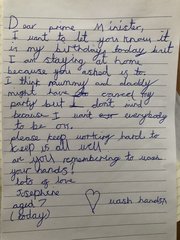 Dear prime Minister,
I want to let you know it
is my birthday today but
I am staying at home
because you asked us to.
I think mummy and daddy
might have to cancel my
party but I don't mind
because I want everybody
to be ok.
please keep working hard to
keep us all well
are you remembering to wash
your hands?
lots of love
Josephine
aged 7
(today)
wash hands